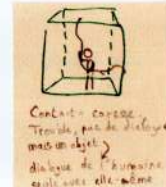 Contact: caresse.
Trouble, pas de dialogue
mais un objet,
dialogue de l'humaine
seule avec elle-même